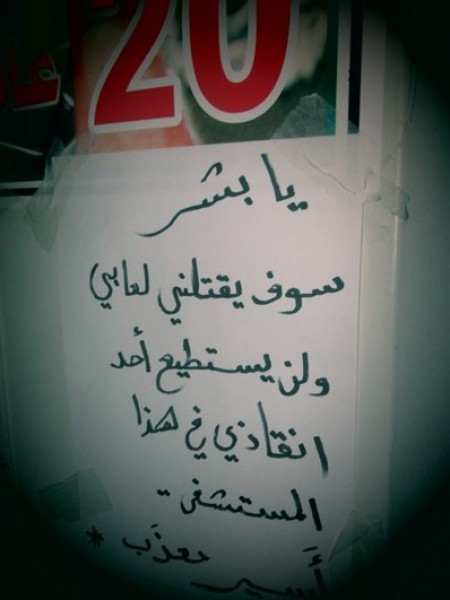 20
يا بشر
سوف يقتلني لعابي
ولن يستطيع أحد
انقاذي في هذا
المستشفى
أسير معذَب *